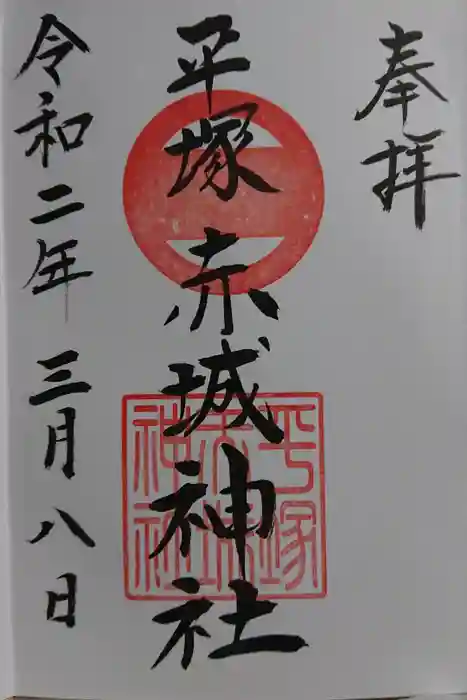 奉拝
平塚赤城神社
平塚赤城神社
令和二年三月八日